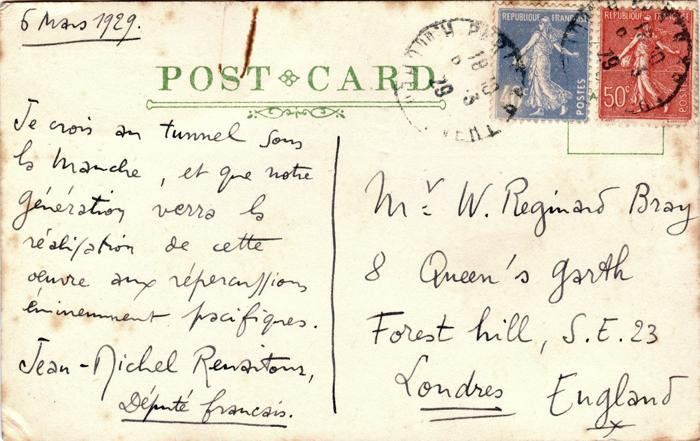 6 Mars 1929.
REPUBLIQUE FRANÇAISE
POSTES
REPUBLIQUE FRANÇAISE
50c
POSTES
18
6-3
29
POST CARD
Je crois au tunnel sous
la Manche, et que notre
génération verra la
réalisation de cette
œuvre aux répercussions
éminemment pacifiques.
Jean-Michel
Député français.
Mr W. Reginard Bray
8 Queen's garth
Forest hill, S.E.23
Londres England